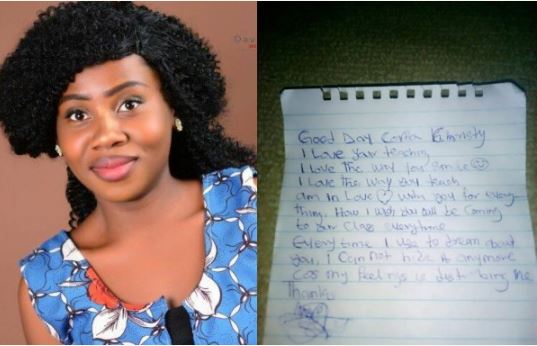 Good Day
I Love Your teaching
I Love The way you Smile
I Love The way you teach
am in Love with you for every
thing. How I wish you will be coming
to our class everytime
Everytime I use to dream about
you, I Can not hide it anymore
Cos my feelings is disturbing me
Thanks